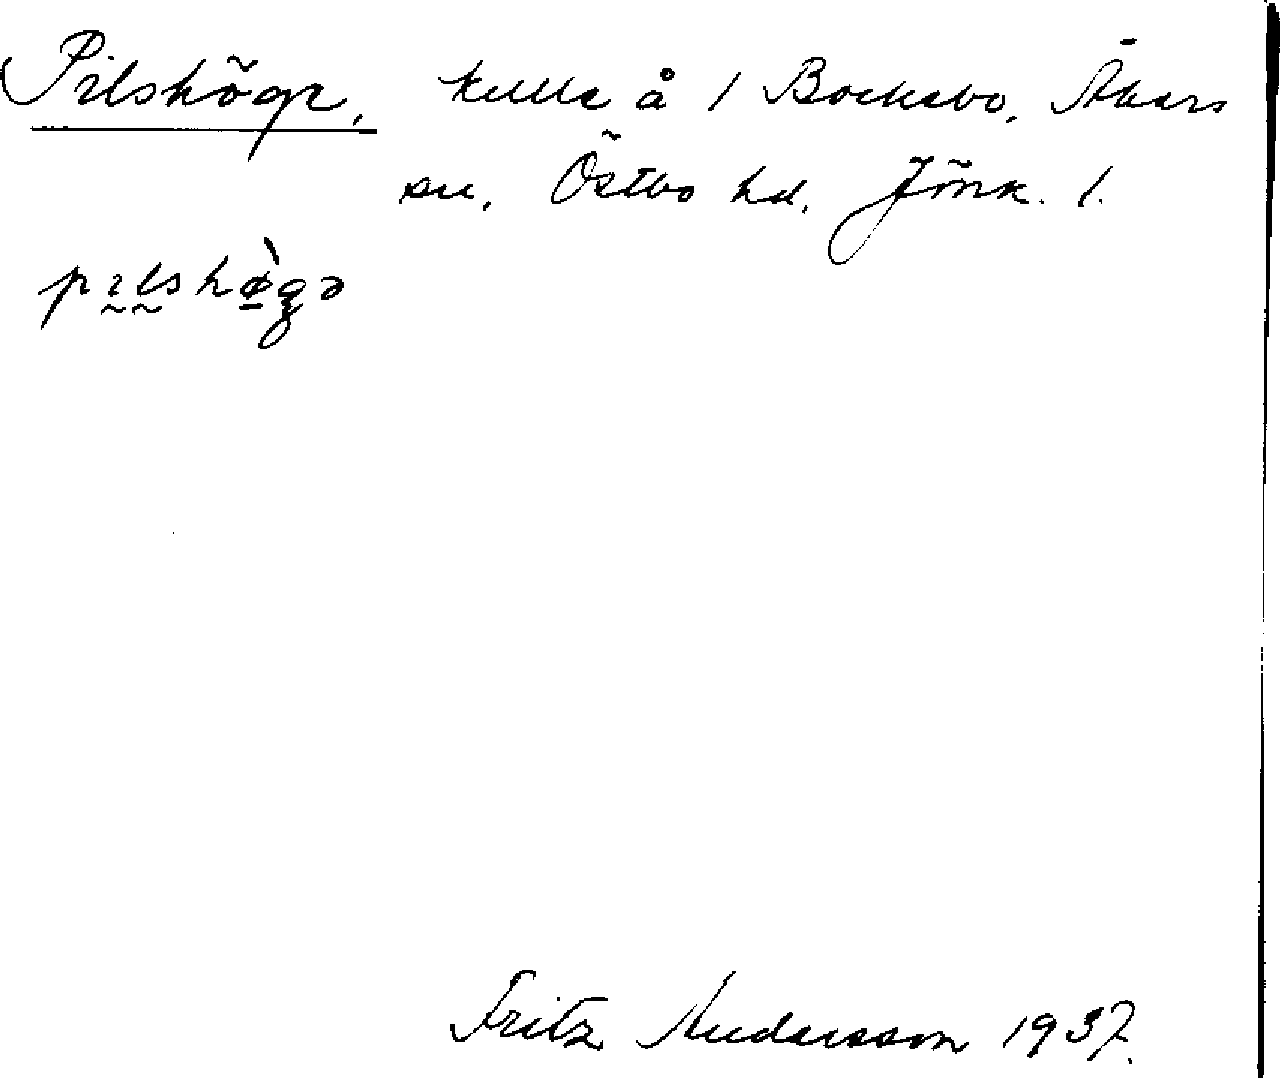 Pilshöge, kulle å 1 Bocksbo, Åkers
sn, Östbo hd. Jönk. l.
pilshø̀gə
Fritz Andersson 1937.